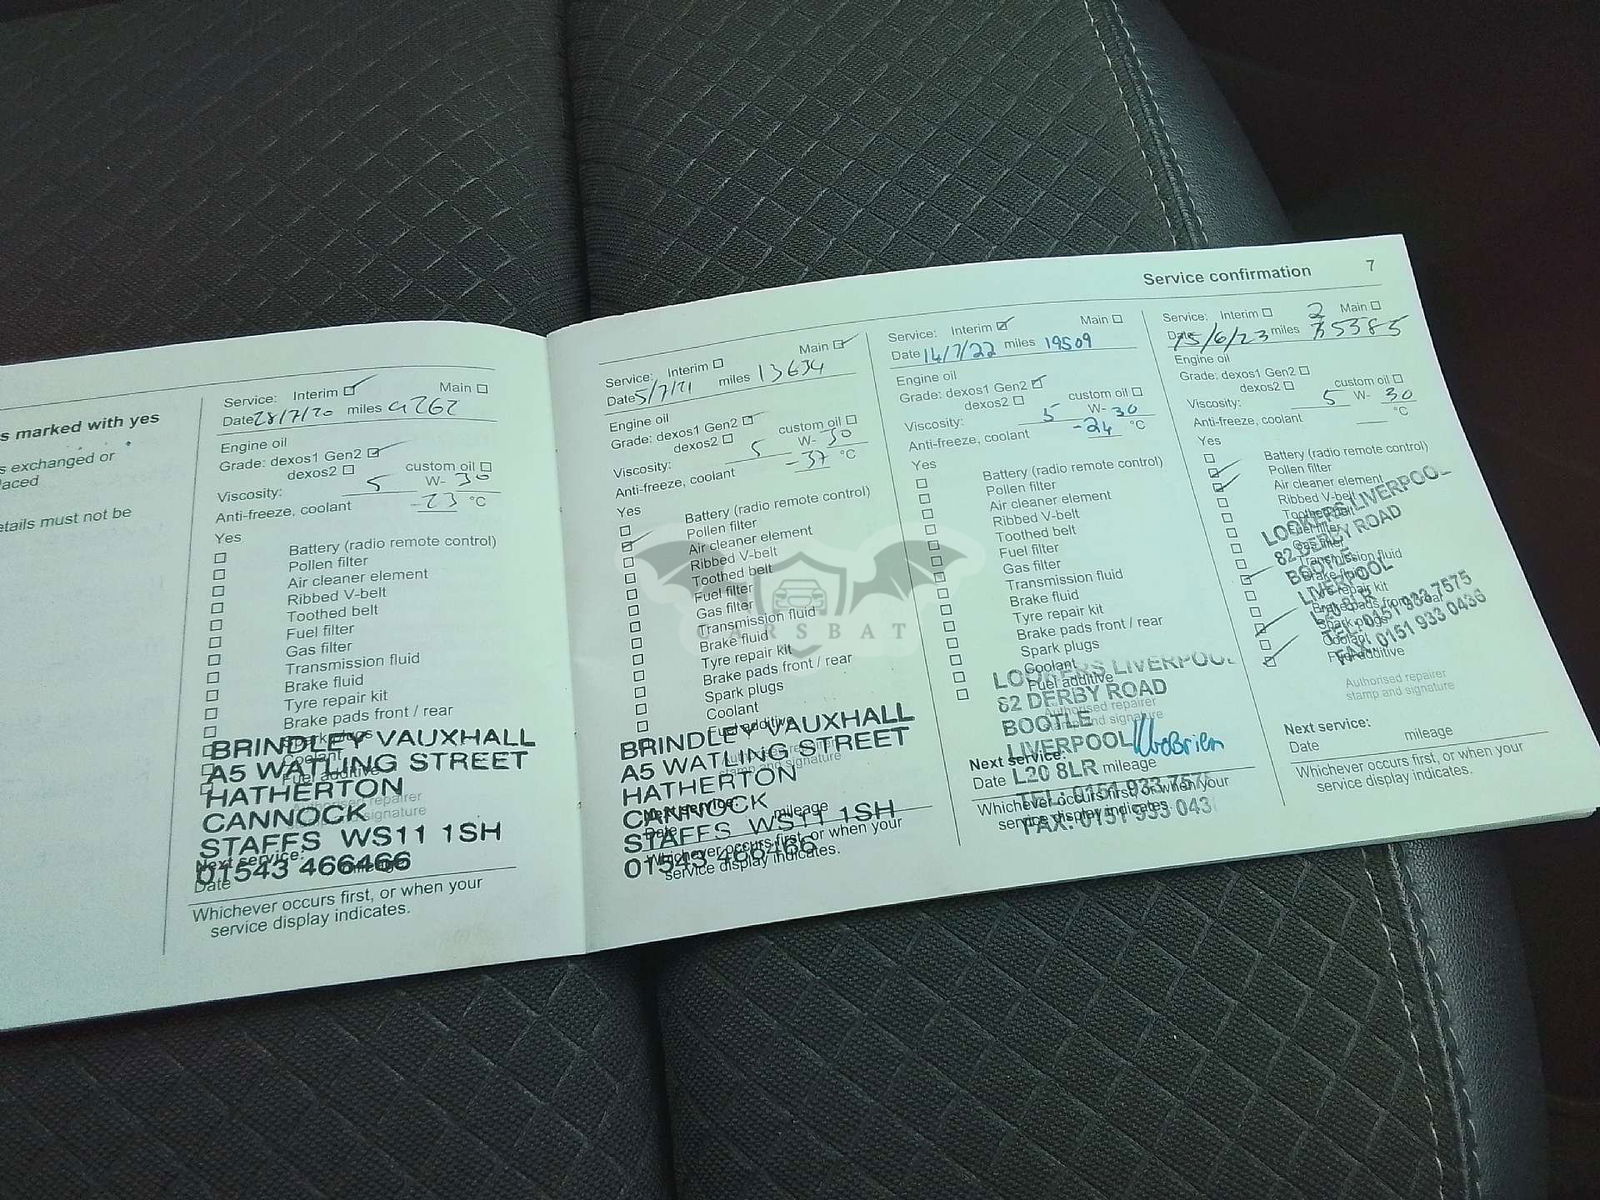 s marked with yes
s exchanged or
laced
etails must not be
Service: Interim Main
Date 28/7/20 miles 9262
Engine oil
Grade: dexos1 Gen2
dexos2 custom oil
Viscosity: 5 W- 30
Anti-freeze, coolant -23 °C
Yes
Battery (radio remote control)
Pollen filter
Air cleaner element
Ribbed V-belt
Toothed belt
Fuel filter
Gas filter
Transmission fluid
Brake fluid
Tyre repair kit
Brake pads front / rear
Spark plugs
Coolant
Fuel additive
BRINDLEY VAUXHALL
A5 WATLING STREET
HATHERTON
CANNOCK
STAFFS WS11 1SH
01543 466466
Authorised repairer
stamp and signature
Next service:
Date mileage
Whichever occurs first, or when your
service display indicates.
Service confirmation 7
Service: Interim Main
Date 5/7/21 miles 13634
Engine oil
Grade: dexos1 Gen2
dexos2 custom oil
Viscosity: 5 W- 30
Anti-freeze, coolant -37 °C
Yes
Battery (radio remote control)
Pollen filter
Air cleaner element
Ribbed V-belt
Toothed belt
Fuel filter
Gas filter
Transmission fluid
Brake fluid
Tyre repair kit
Brake pads front / rear
Spark plugs
Coolant
Fuel additive
BRINDLEY VAUXHALL
A5 WATLING STREET
HATHERTON
CANNOCK
STAFFS WS11 1SH
01543 466466
Next service:
Date mileage
Whichever occurs first, or when your
service display indicates.
Service: Interim Main
Date 14/7/22 miles 19509
Engine oil
Grade: dexos1 Gen2
dexos2 custom oil
Viscosity: 5 W- 30
Anti-freeze, coolant -24 °C
Yes
Battery (radio remote control)
Pollen filter
Air cleaner element
Ribbed V-belt
Toothed belt
Fuel filter
Gas filter
Transmission fluid
Brake fluid
Tyre repair kit
Brake pads front / rear
Spark plugs
Coolant
Fuel additive
LOOKERS LIVERPOOL
82 DERBY ROAD
BOOTLE
LIVERPOOL
L20 8LR
TEL: 0151 933 7575
FAX: 0151 933 043
Authorised repairer
stamp and signature
Next service:
Date mileage
Whichever occurs first, or when your
service display indicates.
Service: Interim 2 Main
Date 15/6/23 miles 25385
Engine oil
Grade: dexos1 Gen2
dexos2 custom oil
Viscosity: 5 W- 30
Anti-freeze, coolant °C
Yes
Battery (radio remote control)
Pollen filter
Air cleaner element
Ribbed V-belt
Toothed belt
Fuel filter
Gas filter
Transmission fluid
Brake fluid
Tyre repair kit
Brake pads front / rear
Spark plugs
Coolant
Fuel additive
LOOKERS LIVERPOOL
82 DERBY ROAD
BOOTLE
LIVERPOOL
TEL: 0151 933 7575
FAX: 0151 933 0436
Authorised repairer
stamp and signature
Next service:
Date mileage
Whichever occurs first, or when your
service display indicates.
CARSBAT